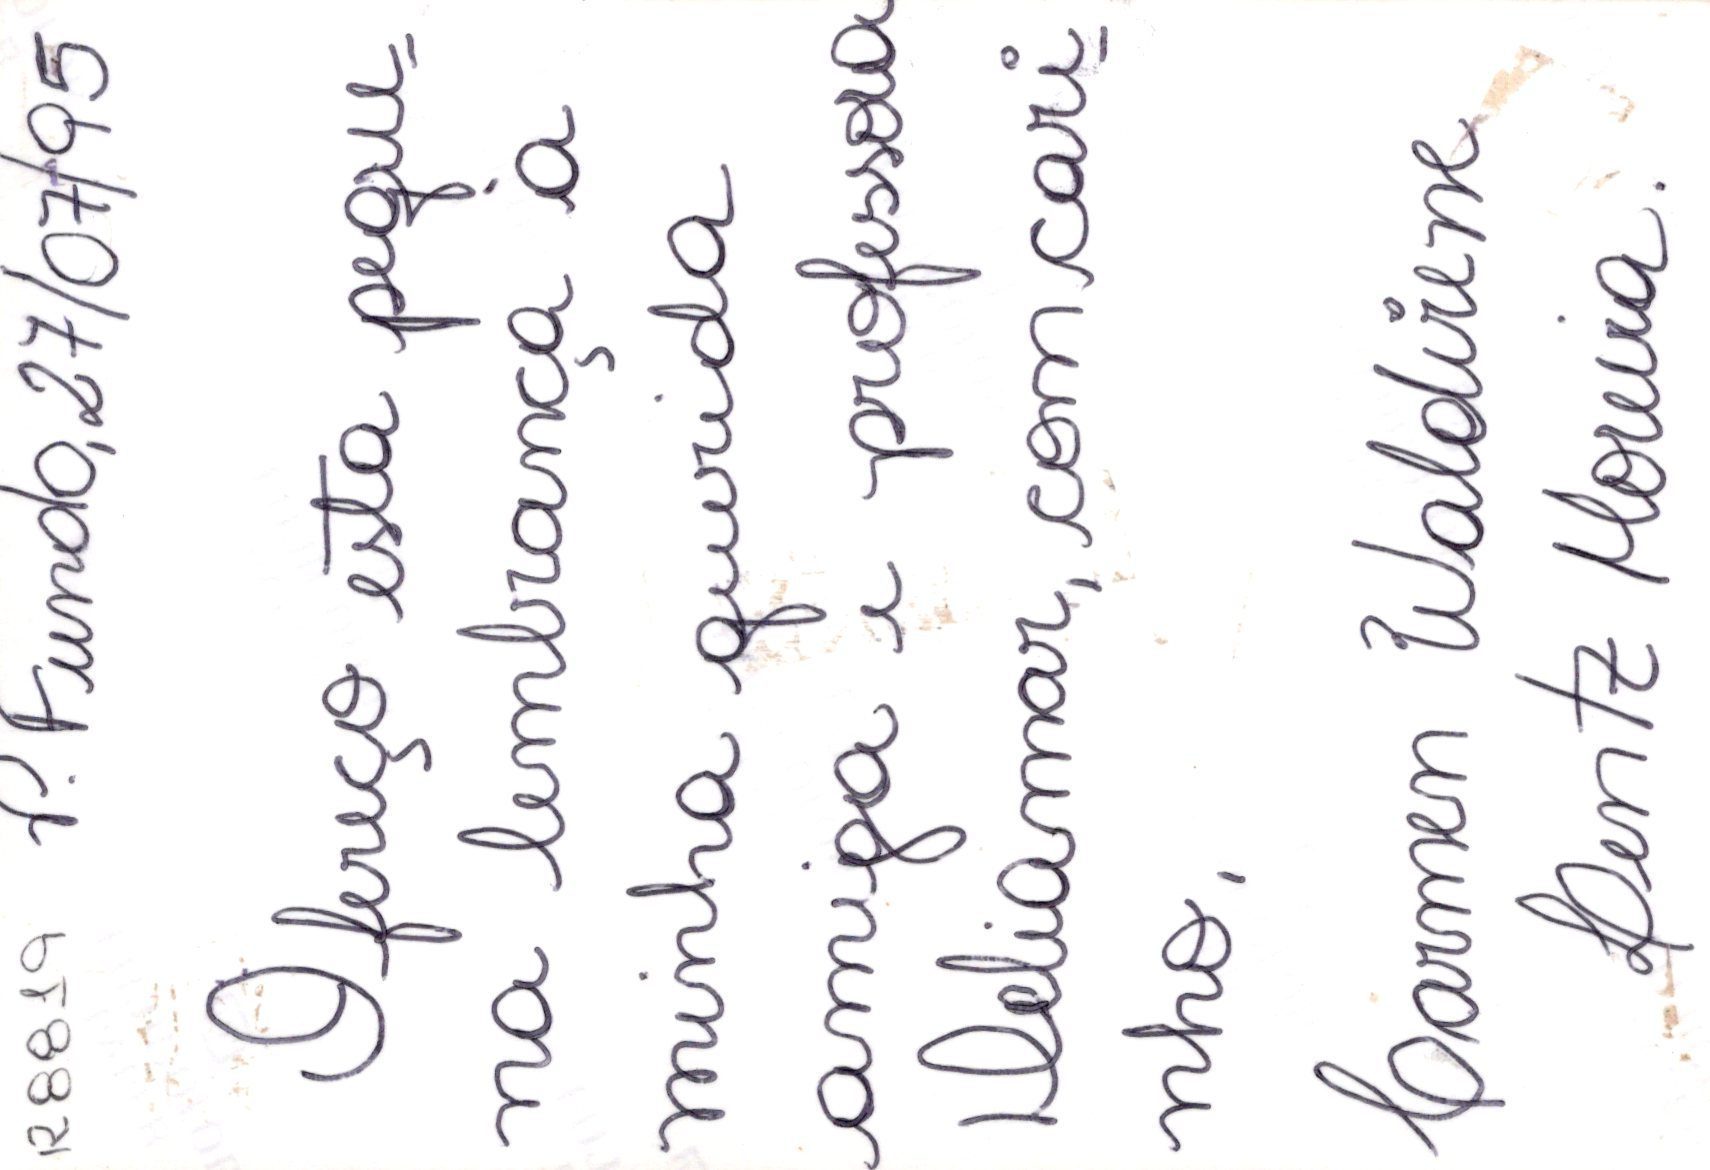 R8819 P. Fundo, 27/07/95
Ofereço esta peque=
na lembrança à
minha querida
amiga e professora
Deliamar, com cari-
nho,
Carmen Waldirene
Dentz Moreira.